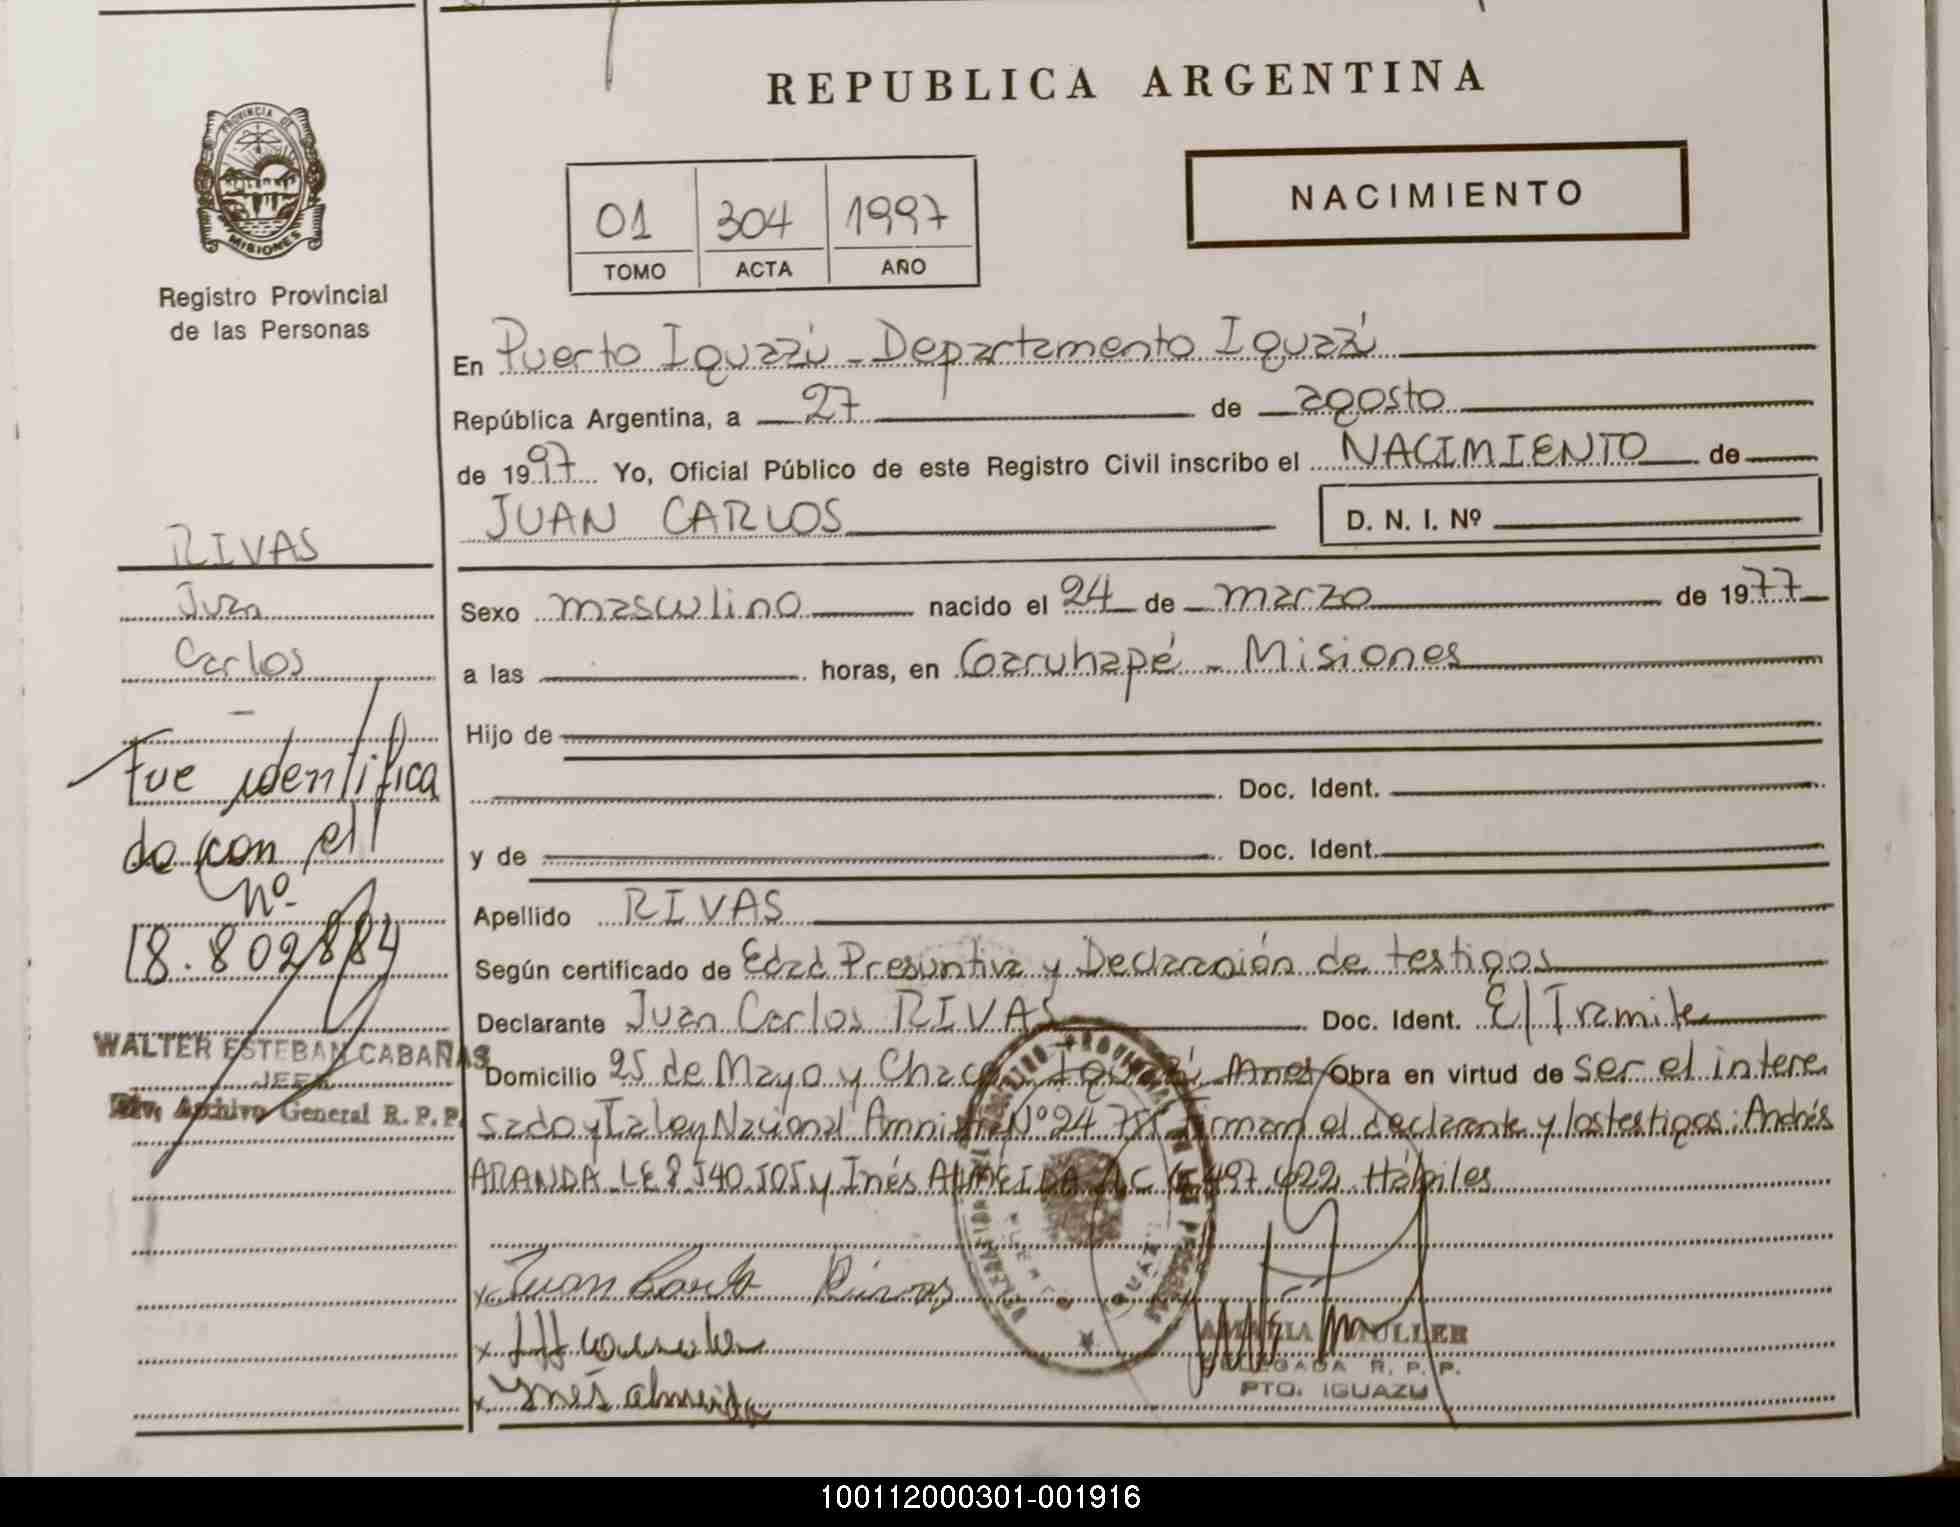 REPUBLICA ARGENTINA
PROVINCIA DE
MISIONES
Registro Provincial
de las Personas
01 304 1997
TOMO ACTA AÑO
NACIMIENTO
En Puerto Iguazú - Departamento Iguazú
República Argentina, a 27 de agosto
de 1997 Yo, Oficial Público de este Registro Civil inscribo el NACIMIENTO de
JUAN CARLOS D. N. I. Nº
Sexo masculino nacido el 24 de marzo de 1977
a las horas, en Garuhapé - Misiones
Hijo de
Doc. Ident.
y de Doc. Ident.
Apellido RIVAS
Según certificado de Edad Presuntiva y Declaración de testigos
Declarante Juan Carlos RIVAS Doc. Ident. E/Tramite
Domicilio 25 de Mayo y Chaco Iguazú Mnes Obra en virtud de ser el intere
sado y la ley Nacional Amnistía Nº 24.755 Firman el declarante y los testigos: Andrés
ARANDA LE 8.540.505 y Inés ALMEIDA Hábiles
Juan Carlos Rivas
Inés Almeida
AMALIA MULLER
DELEGADA R. P. P.
PTO. IGUAZU
RIVAS
Juan
Carlos
Fue identifica
do con el
nº
18.802884
WALTER ESTEBAN CABAÑAS
JEFE
Div. Archivo General R. P. P.
100112000301-001916